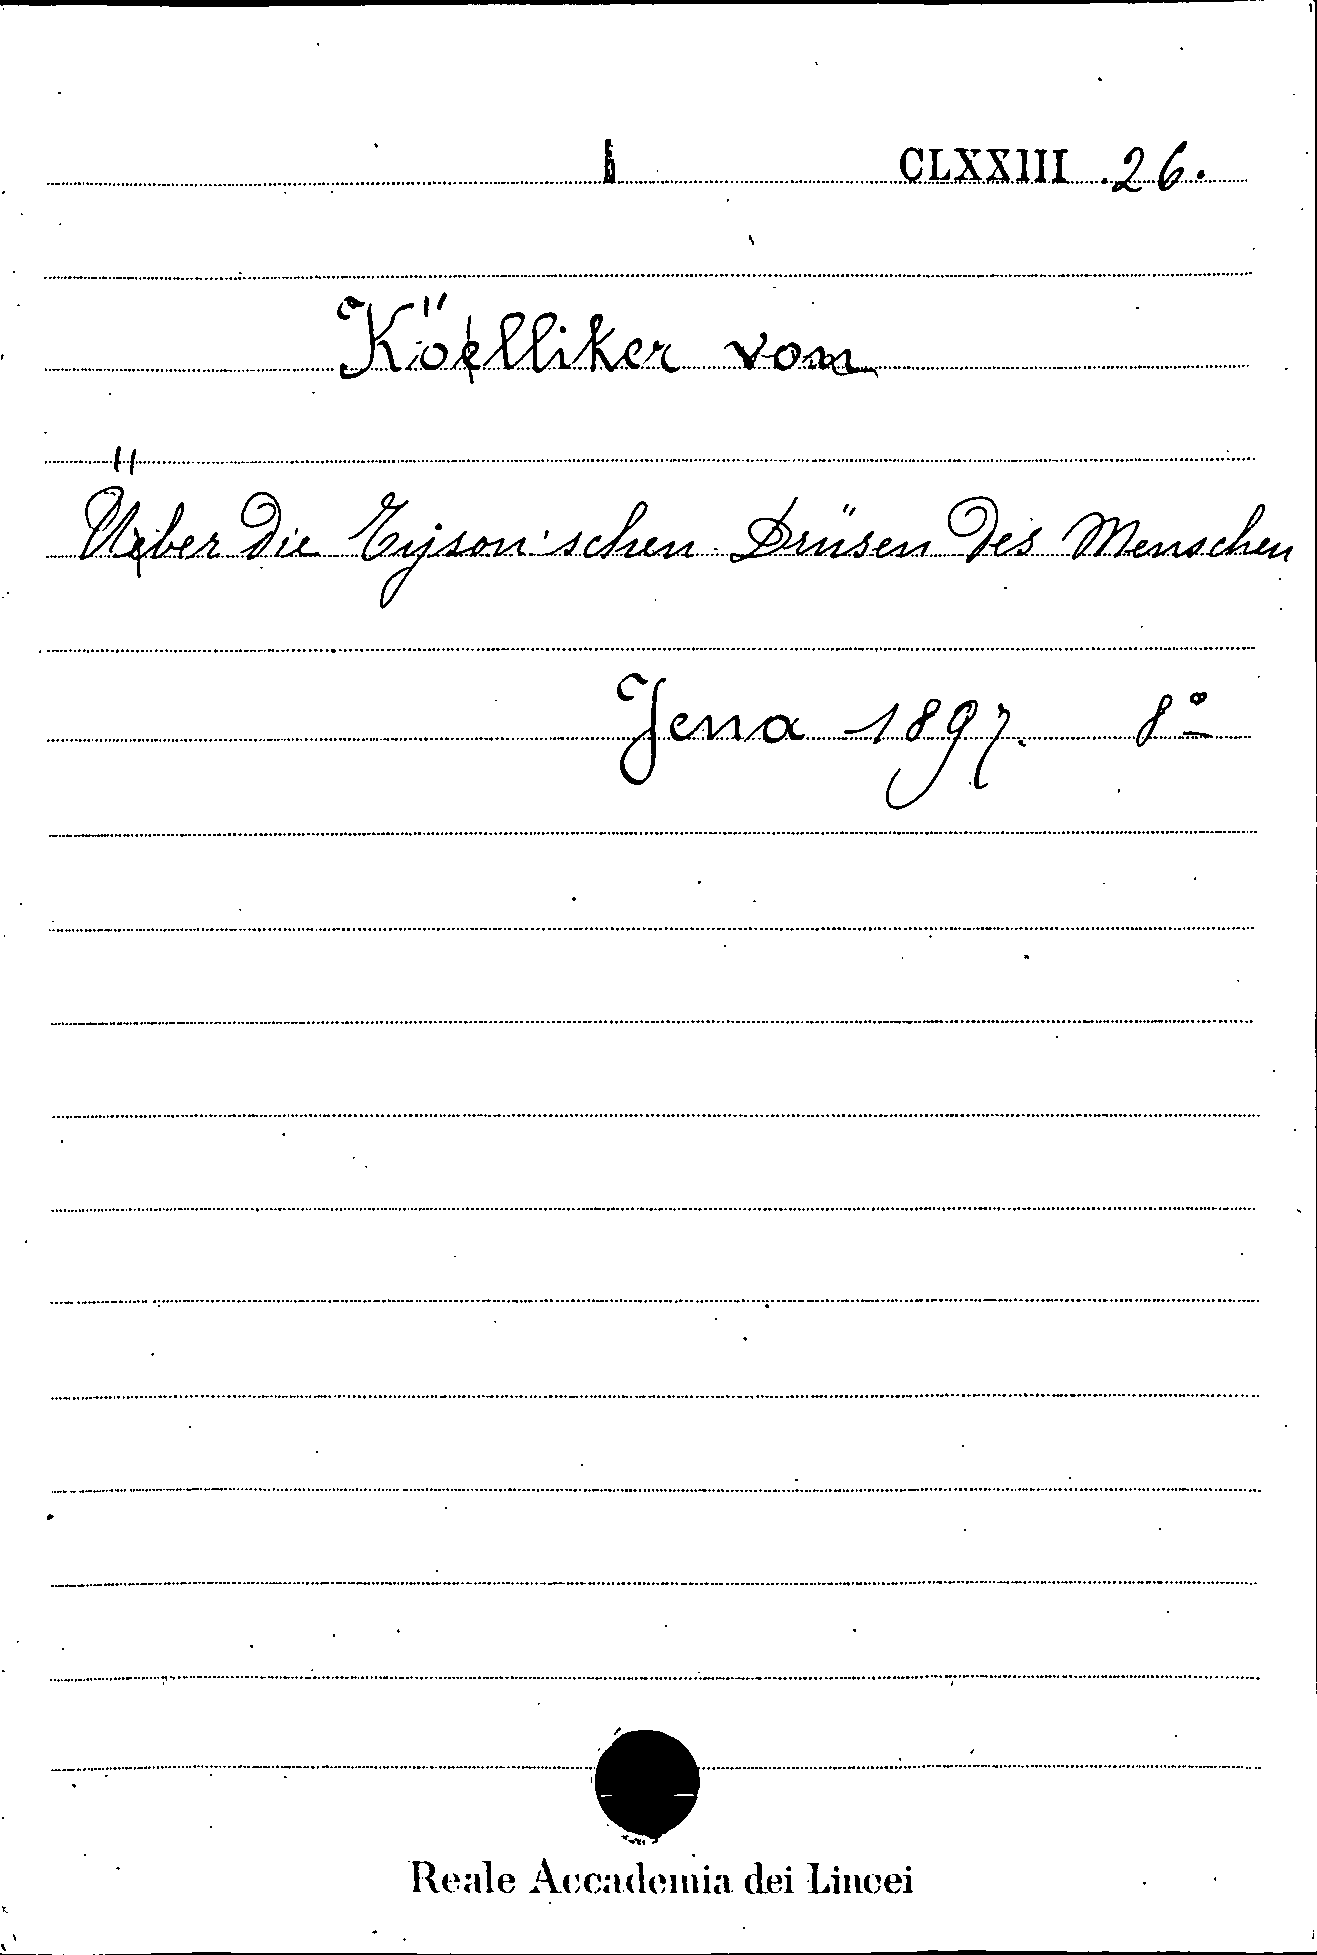 CLXXIII .26.
Kölliker von
Über die Tyson'schen Drüsen des Menschen
Jena 1897. 8º
Reale Accademia dei Lincei